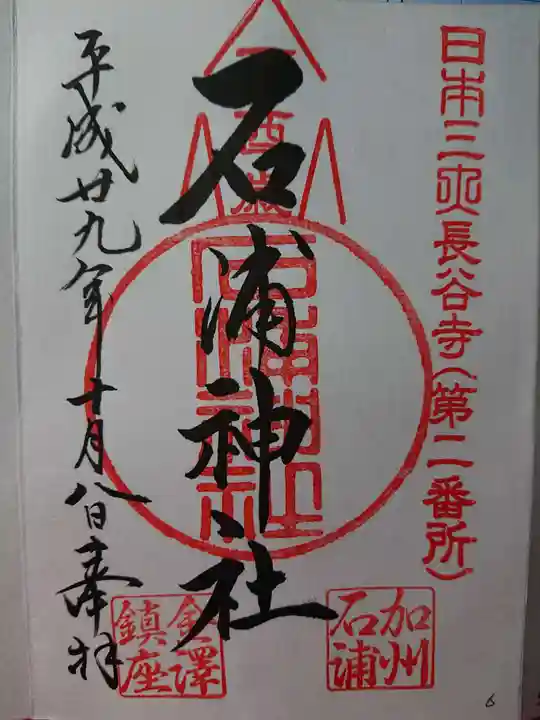 日本三大長谷寺(第二番所)
加州
石浦
石浦神社
酉歳
石浦神社
金澤
鎮座
平成廿九年十月八日奉拝
6